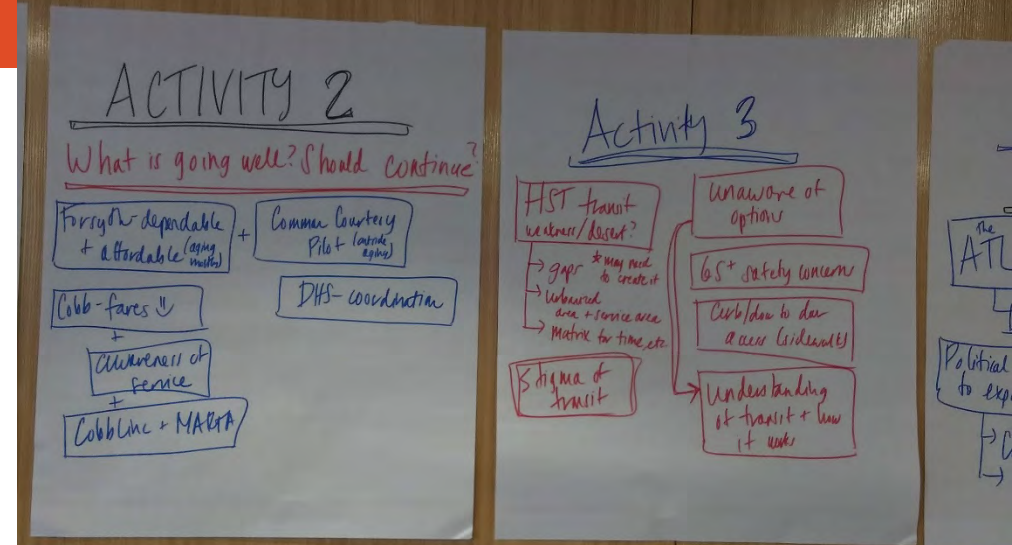 ACTIVITY 2
What is going well? Should continue?
Forsyth-dependable
+ affordable (aging
+
Common Courtesy
Pilot (outside
aging)
DHS-coordination
Cobb-fares
+
awareness of
service
+
CobbLinc + MARTA
Activity 3
HST transit
weakness/desert?
→ gaps
*may need
to create it
→
area + service area
→ matrix for time, etc.
Stigma of
transit
unaware of
options
65+ safety concern
Curb/door to door
access (sidewalks)
understanding
of transit + how
it works
The
ATL
Political
to exp
→ C
→